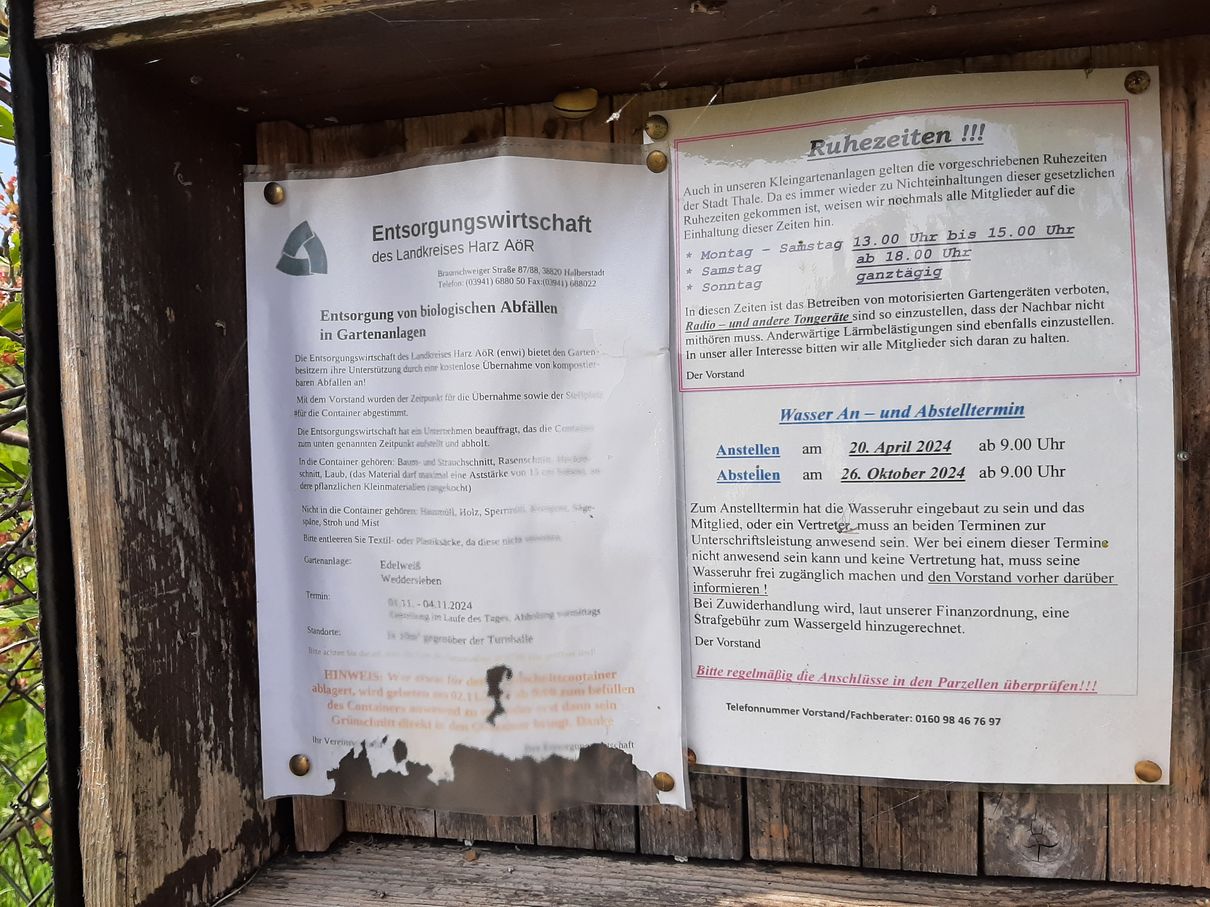 Entsorgungswirtschaft
des Landkreises Harz AöR
Braunschweiger Straße 87/88, 38820 Halberstadt
Telefon: (03941) 6880 50 Fax:(03941) 688022
Entsorgung von biologischen Abfällen
in Gartenanlagen
Die Entsorgungswirtschaft des Landkreises Harz AöR (enwi) bietet den Garten-
besitzern ihre Unterstützung durch eine kostenlose Übernahme von kompostier-
baren Abfällen an!
Mit dem Vorstand wurden der Zeitpunkt für die Übernahme sowie der Stellplatz
für die Container abgestimmt.
Die Entsorgungswirtschaft hat ein Unternehmen beauftragt, das die Container
zum unten genannten Zeitpunkt aufstellt und abholt.
In die Container gehören: Baum- und Strauchschnitt, Rasenschnitt, Hecken-
schnitt, Laub, (das Material darf maximal eine Aststärke von 15 cm
dere pflanzlichen Kleinmaterialien (ungekocht)
Nicht in die Container gehören: Hausmüll, Holz, Sperrmüll, Säge-
späne, Stroh und Mist
Bitte entleeren Sie Textil- oder Plastiksäcke, da diese nicht
Gartenanlage: Edelweiß
Weddersleben
Termin: 01.11. - 04.11.2024
im Laufe des Tages, Abholung vormittags
Standorte: gegenüber der Turnhalle
HINWEIS: Wer etwas für den Grünschnittcontainer
ablagert, wird gebeten am 02.11. ab 9:00 zum befüllen
des Containers anwesend zu und dann sein
Grünschnitt direkt in den Container bringt. Danke
Ihr
Ruhezeiten !!!
Auch in unseren Kleingartenanlagen gelten die vorgeschriebenen Ruhezeiten
der Stadt Thale. Da es immer wieder zu Nichteinhaltungen dieser gesetzlichen
Ruhezeiten gekommen ist, weisen wir nochmals alle Mitglieder auf die
Einhaltung dieser Zeiten hin.
* Montag – Samstag 13.00 Uhr bis 15.00 Uhr
* Samstag ab 18.00 Uhr
* Sonntag ganztägig
In diesen Zeiten ist das Betreiben von motorisierten Gartengeräten verboten,
Radio – und andere Tongeräte sind so einzustellen, dass der Nachbar nicht
mithören muss. Anderwärtige Lärmbelästigungen sind ebenfalls einzustellen.
In unser aller Interesse bitten wir alle Mitglieder sich daran zu halten.
Der Vorstand
Wasser An – und Abstelltermin
Anstellen am 20. April 2024 ab 9.00 Uhr
Abstellen am 26. Oktober 2024 ab 9.00 Uhr
Zum Anstelltermin hat die Wasseruhr eingebaut zu sein und das
Mitglied, oder ein Vertreter muss an beiden Terminen zur
Unterschriftsleistung anwesend sein. Wer bei einem dieser Termine
nicht anwesend sein kann und keine Vertretung hat, muss seine
Wasseruhr frei zugänglich machen und den Vorstand vorher darüber
informieren !
Bei Zuwiderhandlung wird, laut unserer Finanzordnung, eine
Strafgebühr zum Wassergeld hinzugerechnet.
Der Vorstand
Bitte regelmäßig die Anschlüsse in den Parzellen überprüfen!!!
Telefonnummer Vorstand/Fachberater: 0160 98 46 76 97